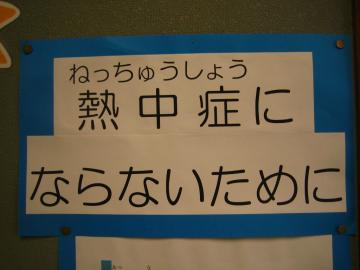 ねっちゅうしょう
熱中症に
ならないために